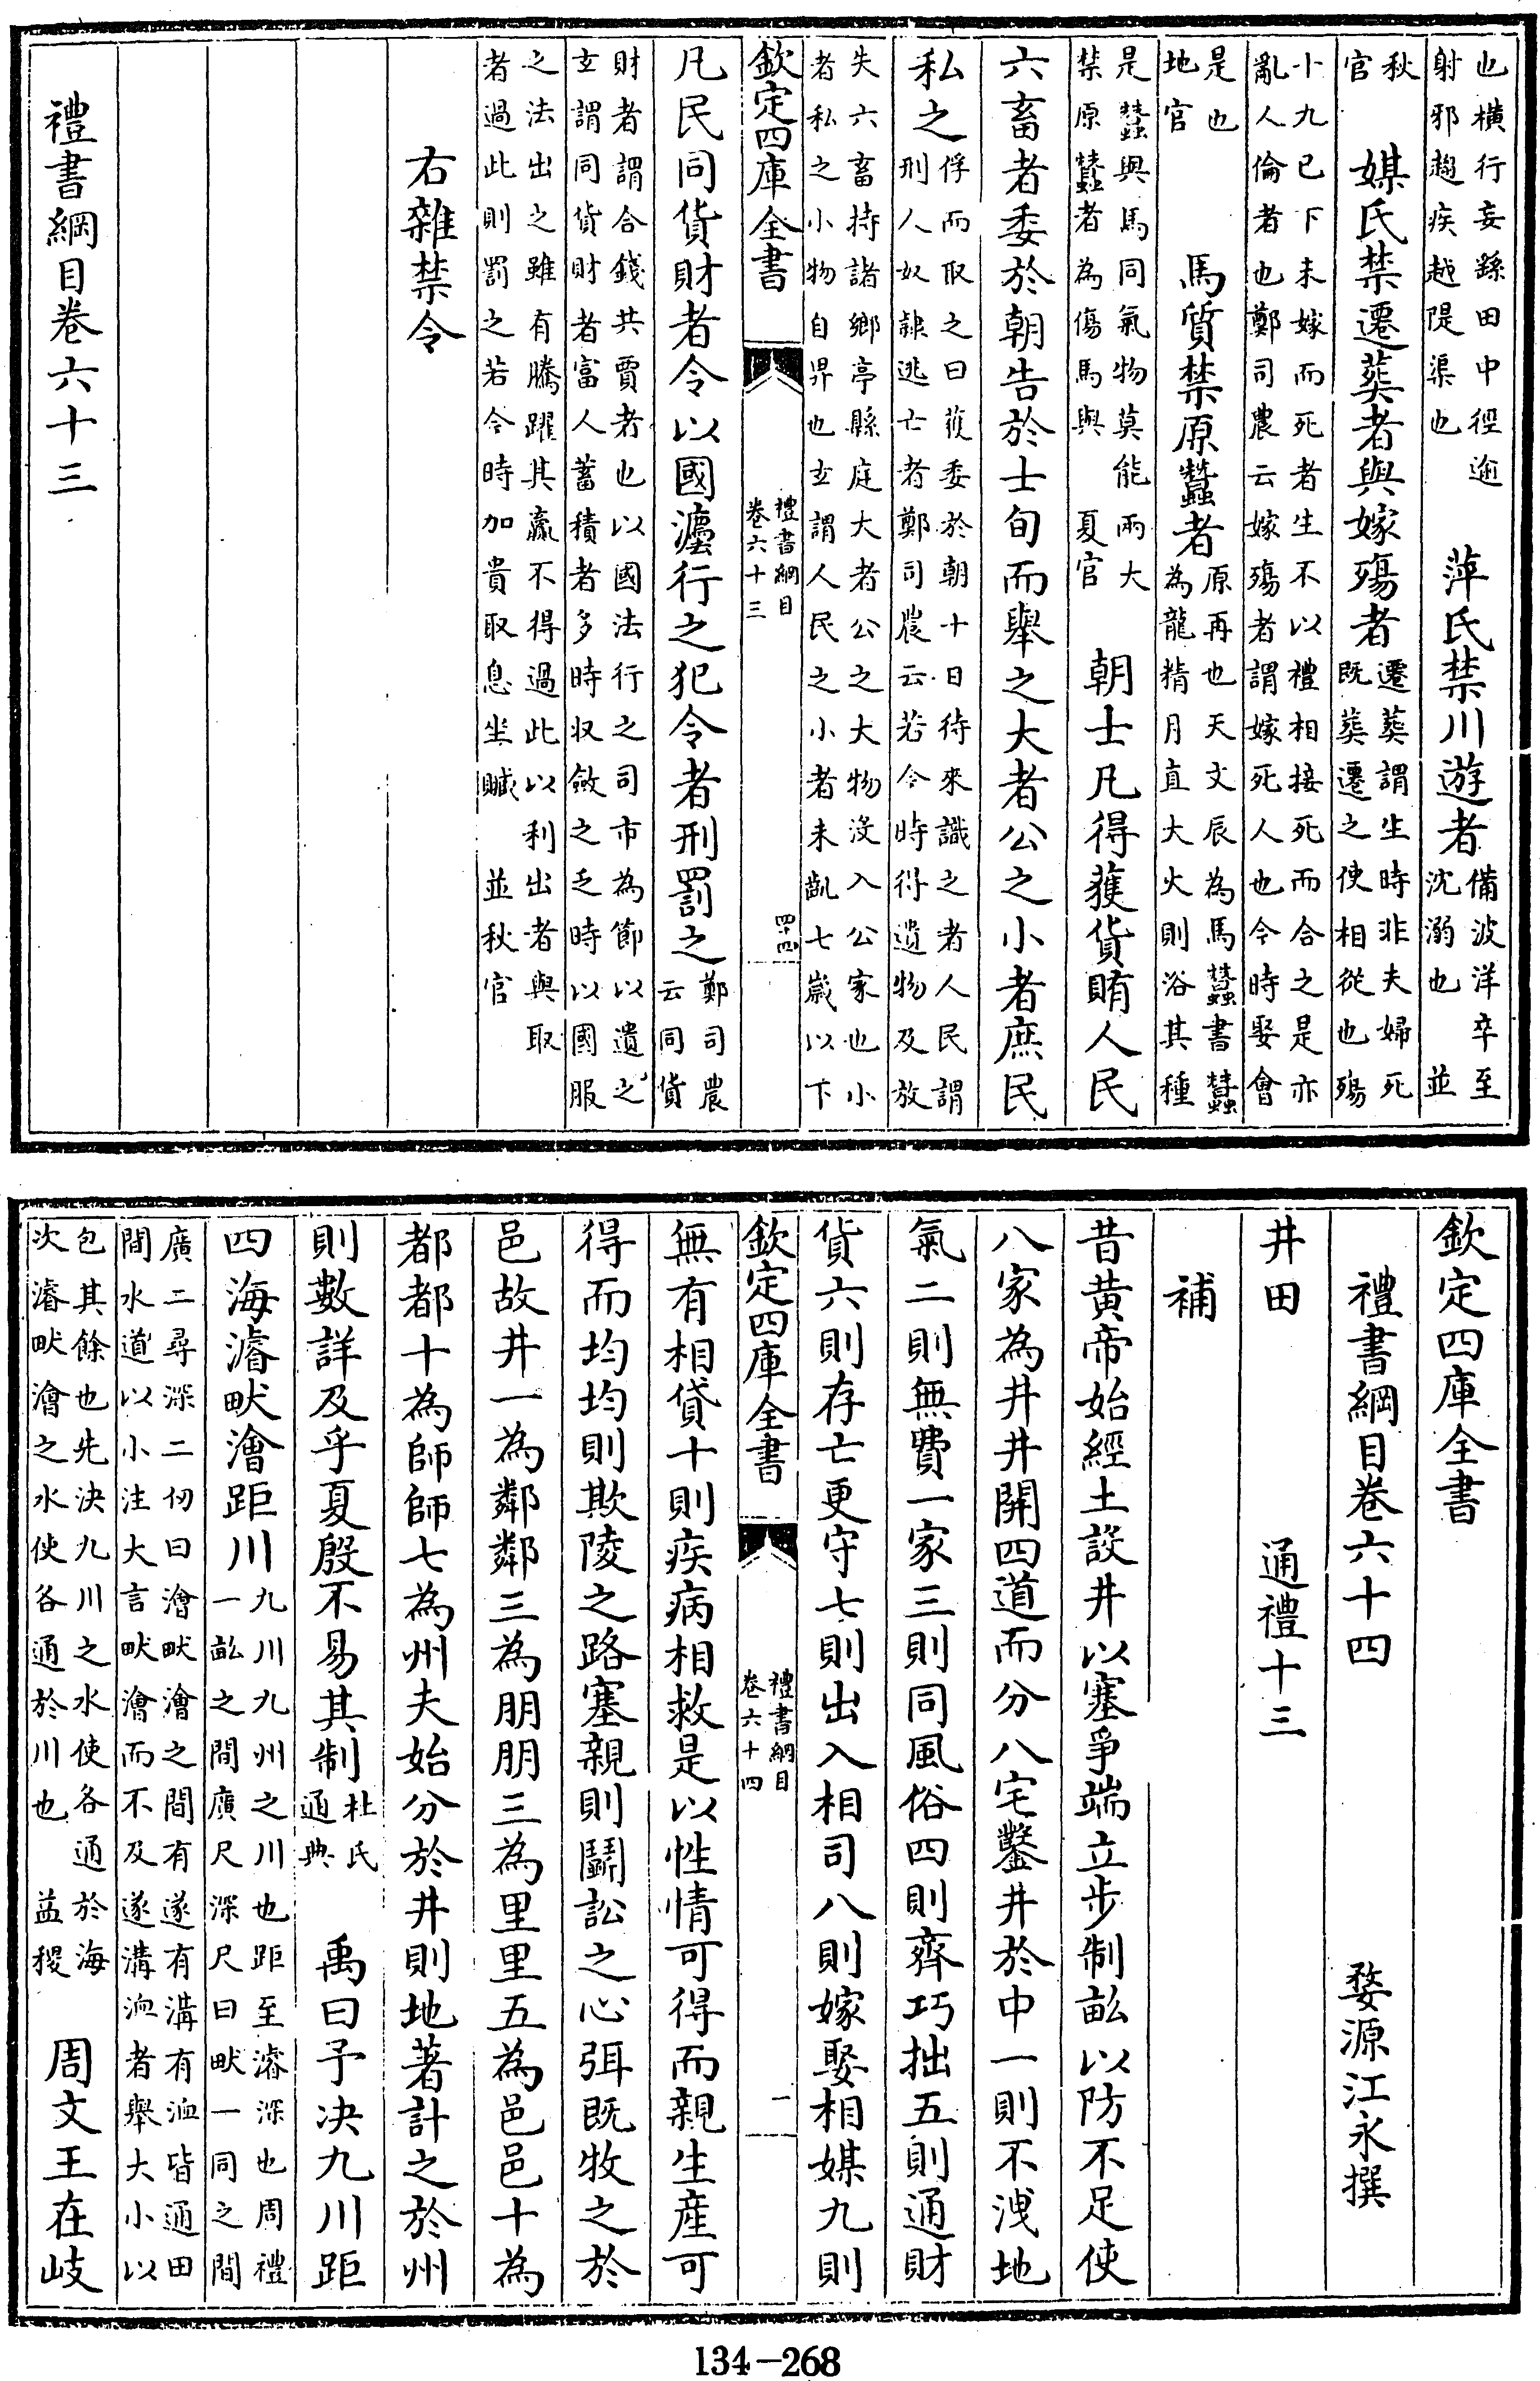 也橫行妄繇田中徑逾
射邪趨疾越隄渠也
萍氏禁川遊者
備波洋卒至
沈溺也　並
秋
官
媒氏禁遷葬者與嫁殤者
遷葬謂生時非夫婦死
既葬遷之使相從也殤
十九已下未嫁而死者生不以禮相接死而合之是亦
亂人倫者也鄭司農云嫁殤者謂嫁死人也今時娶會
是也
地官
馬質禁原蠶者
原再也天文辰為馬蠶書蠶
為龍精月直大火則浴其種
是蠶與馬同氣物莫能兩大
禁原蠶者為傷馬與　夏官
朝士凡得獲貨賄人民
六畜者委於朝告於士旬而舉之大者公之小者庶民
私之
俘而取之曰獲委於朝十日待來識之者人民謂
刑人奴隸逃亡者鄭司農云若今時得遺物及放
失六畜持諸鄉亭縣庭大者公之大物沒入公家也小
者私之小物自畀也玄謂人民之小者未齓七歲以下
欽定四庫全書
禮書綱目
卷六十三
四十四
凡民同貨財者令以國灋行之犯令者刑罰之
鄭司農
云同貨
財者謂合錢共賈者也以國法行之司市為節以遺之
玄謂同貨財者富人蓄積者多時収斂之乏時以國服
之法出之雖有騰躍其贏不得過此以利出者與取
者過此則罰之若今時加貴取息坐贓　並秋官
右雜禁令
禮書綱目卷六十三
欽定四庫全書
禮書綱目卷六十四
婺源江永撰
井田
通禮十三
補
昔黃帝始經土設井以塞爭端立步制畝以防不足使
八家為井井開四道而分八宅鑿井於中一則不洩地
氣二則無費一家三則同風俗四則齊巧拙五則通財
貨六則存亡更守七則出入相司八則嫁娶相媒九則
欽定四庫全書
禮書綱目
卷六十四
一
無有相貸十則疾病相救是以性情可得而親生産可
得而均均則欺陵之路塞親則鬭訟之心弭既牧之於
邑故井一為鄰鄰三為朋朋三為里里五為邑邑十為
都都十為師師七為州夫始分於井則地著計之於州
則數詳及乎夏殷不易其制
杜氏
通典
禹曰予決九川距
四海濬畎澮距川
九川九州之川也距至濬深也周禮
一畝之間廣尺深尺曰畎一同之間
廣二尋深二仞曰澮畎澮之間有遂有溝有洫皆通田
間水道以小注大言畎澮而不及遂溝洫者舉大小以
包其餘也先決九川之水使各通於海
次濬畎澮之水使各通於川也　益稷
周文王在岐
134-268